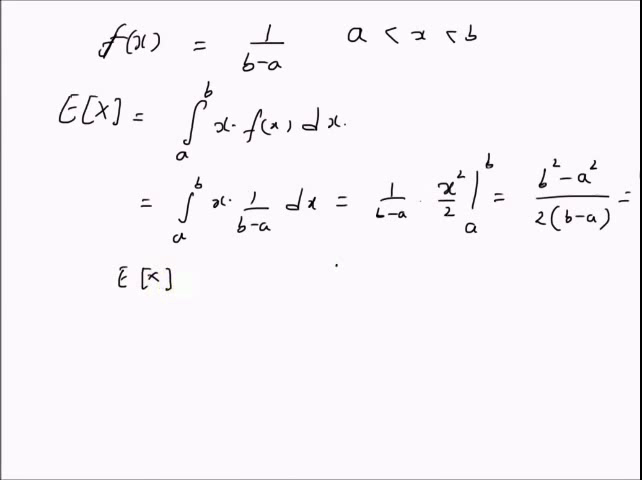 f(x) = 1/(b-a) a < x < b
E[X] = ∫_a^b x · f(x) dx.
= ∫_a^b x · 1/(b-a) dx = 1/(b-a) · x²/2 |_a^b = (b² - a²)/(2(b-a)) =
E[x]